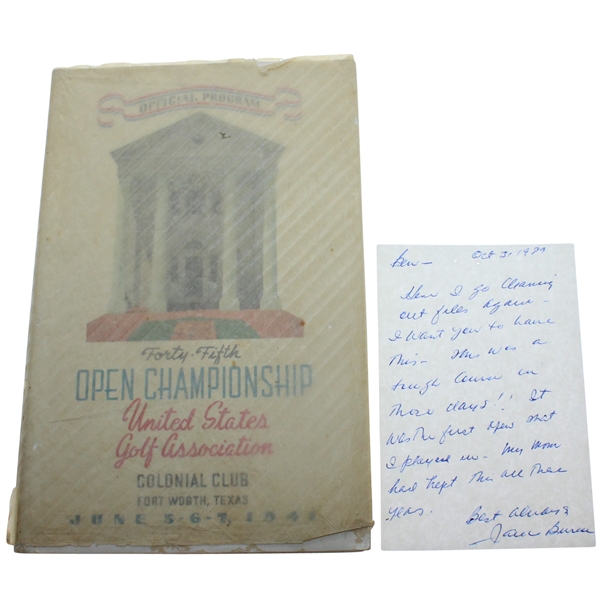 OFFICIAL PROGRAM
Forty-Fifth
OPEN CHAMPIONSHIP
United States
Golf Association
COLONIAL CLUB
FORT WORTH, TEXAS
JUNE 5-6-7, 1941
Ben—
Oct 3, 19
Here I go Cleaning
out files again—
I want you to have
this— This was a
tough Course in
Those days!! It
was the first Open that
I played in— My Mom
had kept this all these
years.
Best Always